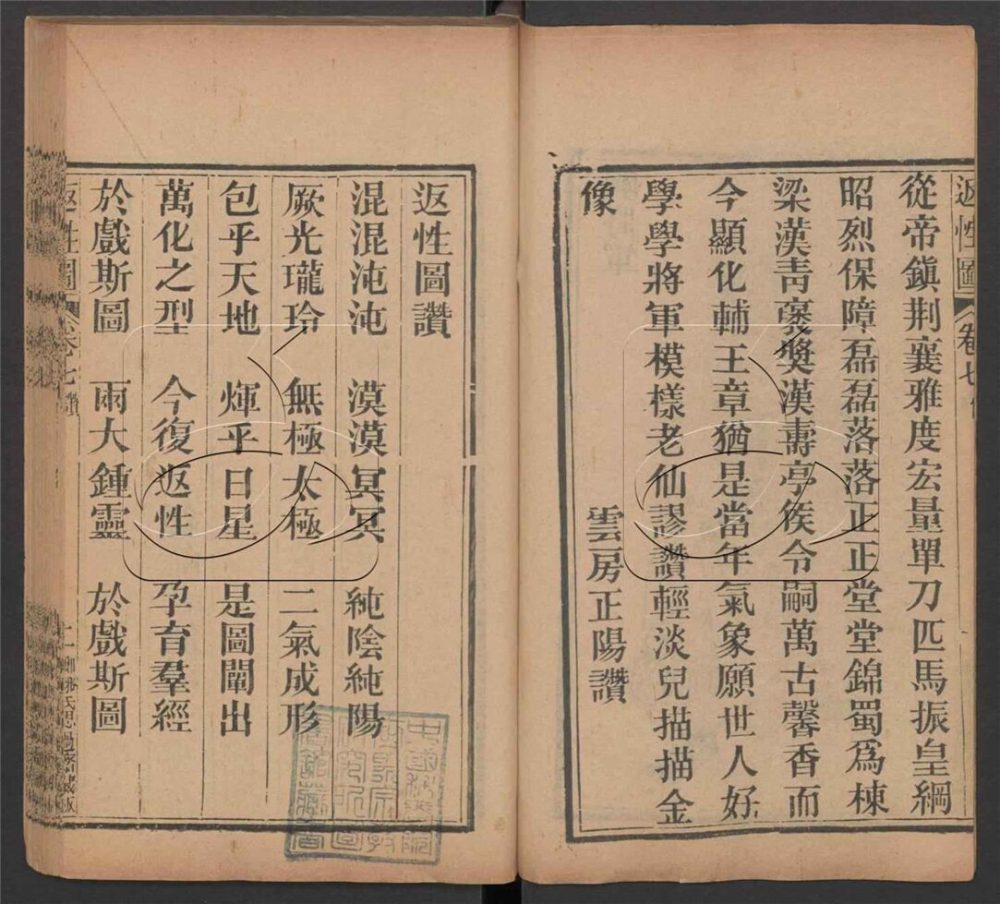 返性圖 卷七
從帝鎭荆襄雅度宏量單刀匹馬振皇綱
昭烈保障磊磊落落正正堂堂錦蜀爲棟
梁漢靑褒奬漢壽亭侯令嗣萬古馨香而
今顯化輔王章猶是當年氣象願世人好
學學將軍模樣老仙謬讚輕淡兒描描金
像 雲房正陽讚
返性圖讚
混混沌沌 漠漠冥冥 純陰純陽
厥光瓏玲 無極太極 二氣成形
包乎天地 煇乎日星 是圖闡出
萬化之型 今復返性 孕育羣經
於戲斯圖 兩大鍾靈 於戲斯圖
返性圖 卷七 讚